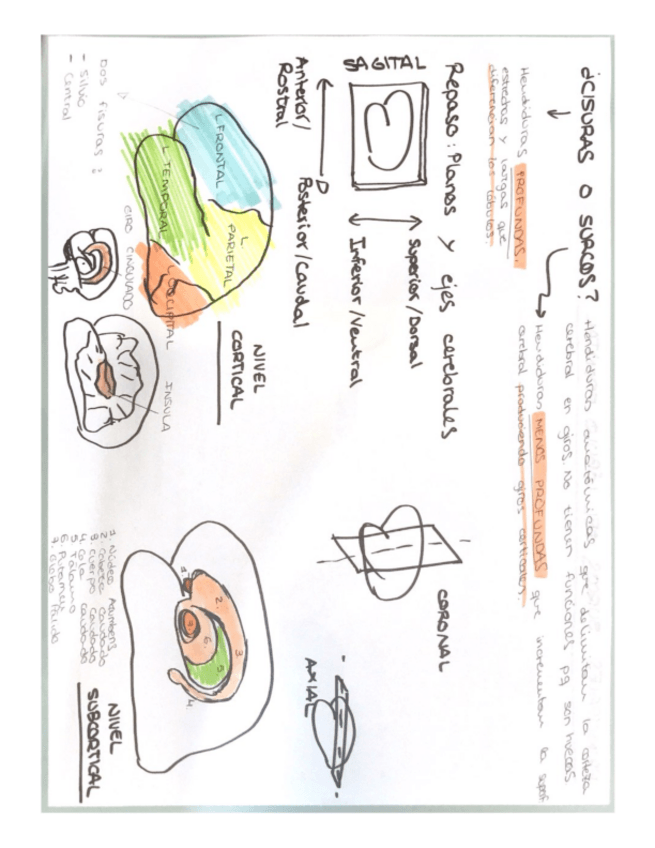 ¿CISURAS O SURCOS?
Hendiduras anatómicas que delimitan la corteza
cerebral en giros. No tienen funciones pq son huecos
Hendiduras PROFUNDAS,
estrechas y largas que
diferencian los lóbulos.
Hendiduras MENOS PROFUNDAS que incrementan la superf
cerebral produciendo giros corticales.
Repaso: Planos y ejes cerebrales
SAGITAL
Superior/Dorsal
Inferior/Ventral
Anterior/
Rostral
Posterior/Caudal
CORONAL
AXIAL
NIVEL
CORTICAL
L. FRONTAL
L. PARIETAL
L. TEMPORAL
L. OCCIPITAL
Dos fisuras:
- Silvio
- Central
GIRO CINGULADO
INSULA
NIVEL
SUBCORTICAL
2.
3
4
5
6.
1. Núcleo Acumbens
2. Cabeza caudado
3. Cuerpo caudado
4. Cola caudado
5. Tálamo
6. Putamen
7. Globo Pálido